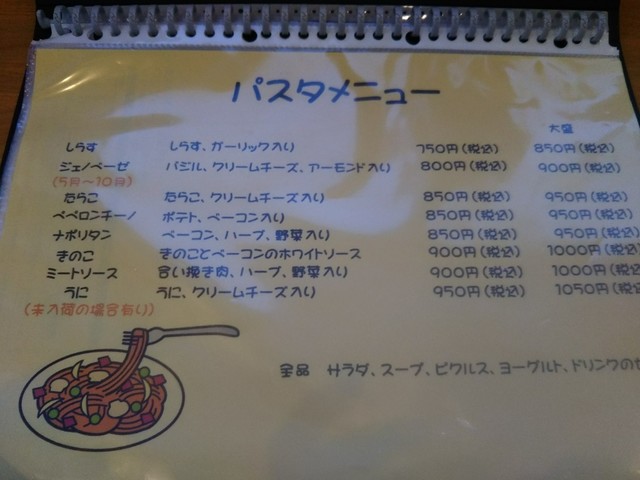 パスタメニュー
大盛
しらす しらす、ガーリック入り 750円(税込) 850円(税込)
ジェノベーゼ バジル、クリームチーズ、アーモンド入り 800円(税込) 900円(税込)
(5月～10月)
たらこ たらこ、クリームチーズ入り 850円(税込) 950円(税込)
ペペロンチーノ ポテト、ベーコン入り 850円(税込) 950円(税込)
ナポリタン ベーコン、ハーブ、野菜入り 850円(税込) 950円(税込)
きのこ きのことベーコンのホワイトソース 900円(税込) 1000円(税込)
ミートソース 合い挽き肉、ハーブ、野菜入り 900円(税込) 1000円(税込)
うに うに、クリームチーズ入り 950円(税込) 1050円(税込)
(未入荷の場合有り)
全品 サラダ、スープ、ピクルス、ヨーグルト、ドリンクの